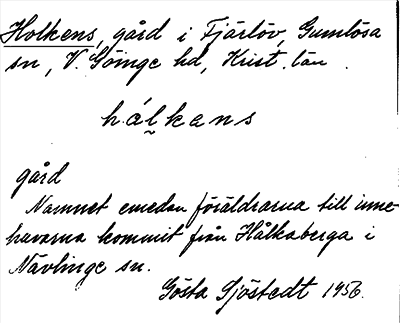 Holkens, gård i Fjärlöv, Gumlösa
sn, V. Göinge hd, Krist. län.
hálkans
gård
Namnet emedan föräldrarna till inne-
havarna kommit från Hålkaberga i
Nävlinge sn.
Gösta Sjöstedt 1956.